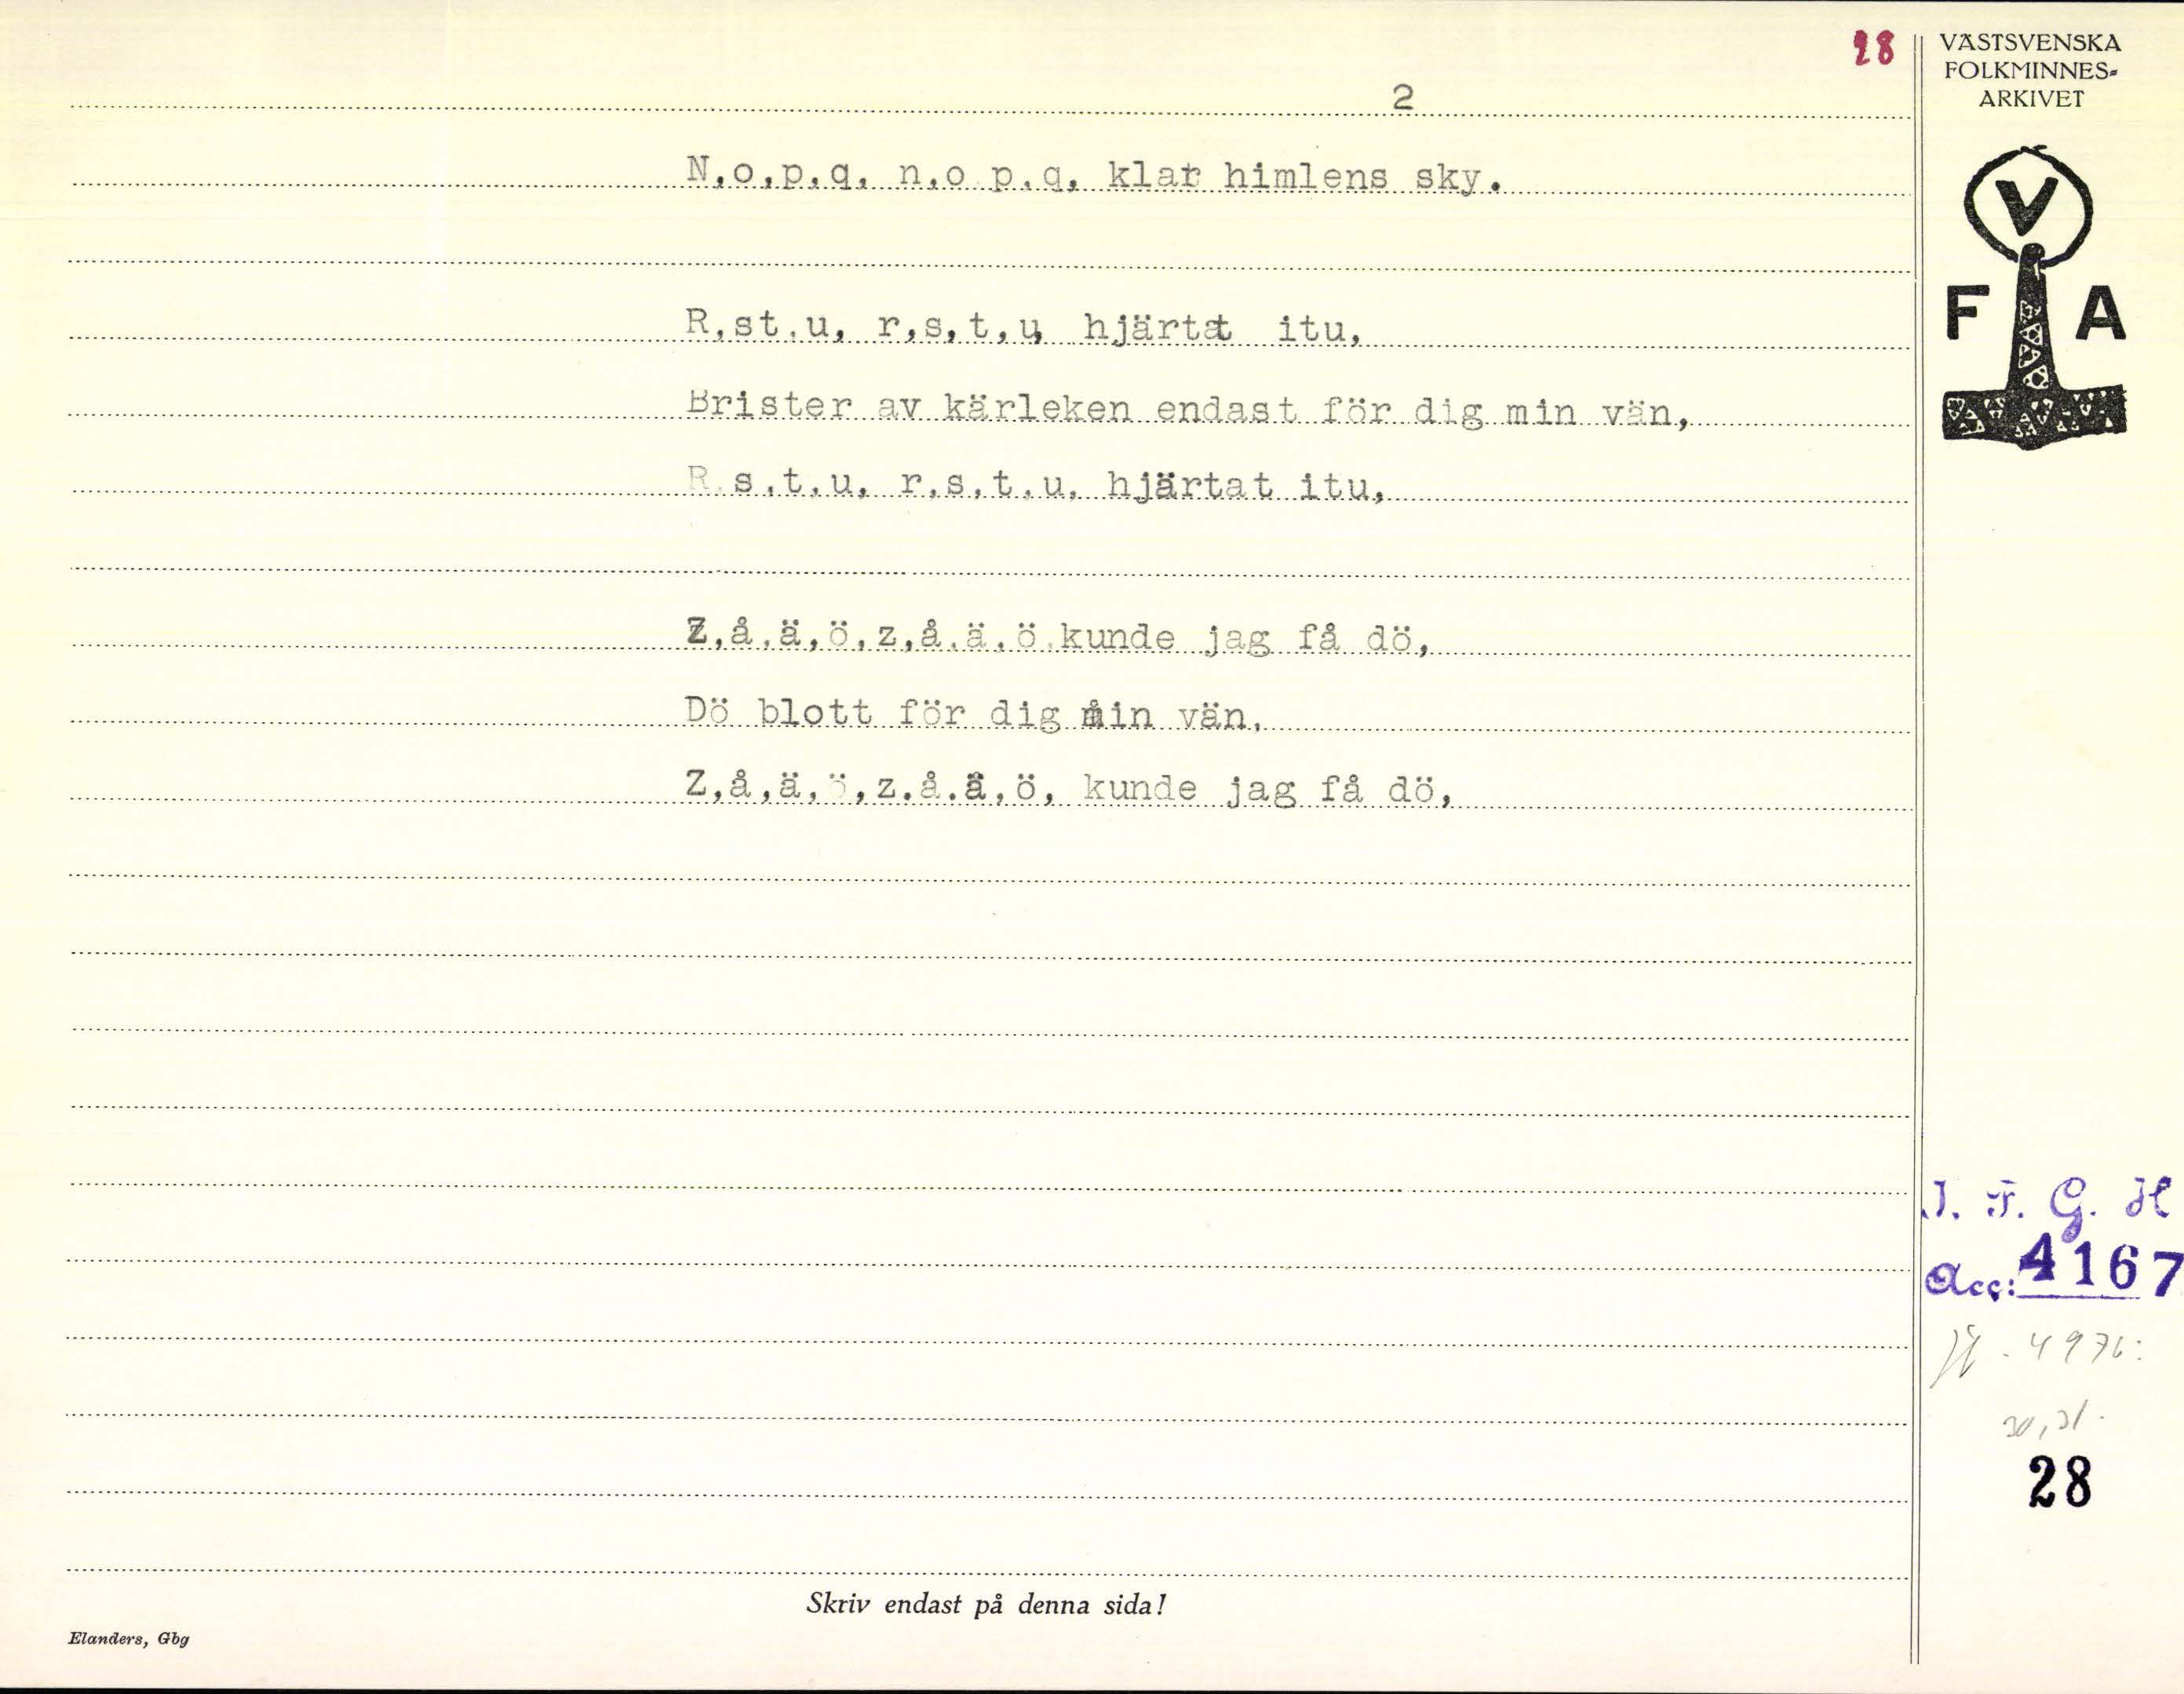 28
VÄSTSVENSKA
FOLKMINNES-
ARKIVET
2
N,o,p,q, n,o p,q, klar himlens sky.
V
F A
R,st,u, r,s,t,u, hjärtat itu,
Brister av kärleken endast för dig min vän,
R.s,t,u, r,s,t,u, hjärtat itu,
Z,å,ä,ö,z,å,ä,ö,kunde jag få dö,
Dö blott för dig min vän,
Z,å,ä,ö,z.å.ä,ö, kunde jag få dö,
I. F. G. H
Acc: 4167
jf. 4976:
30,31.
28
Skriv endast på denna sida!
Elanders, Gbg